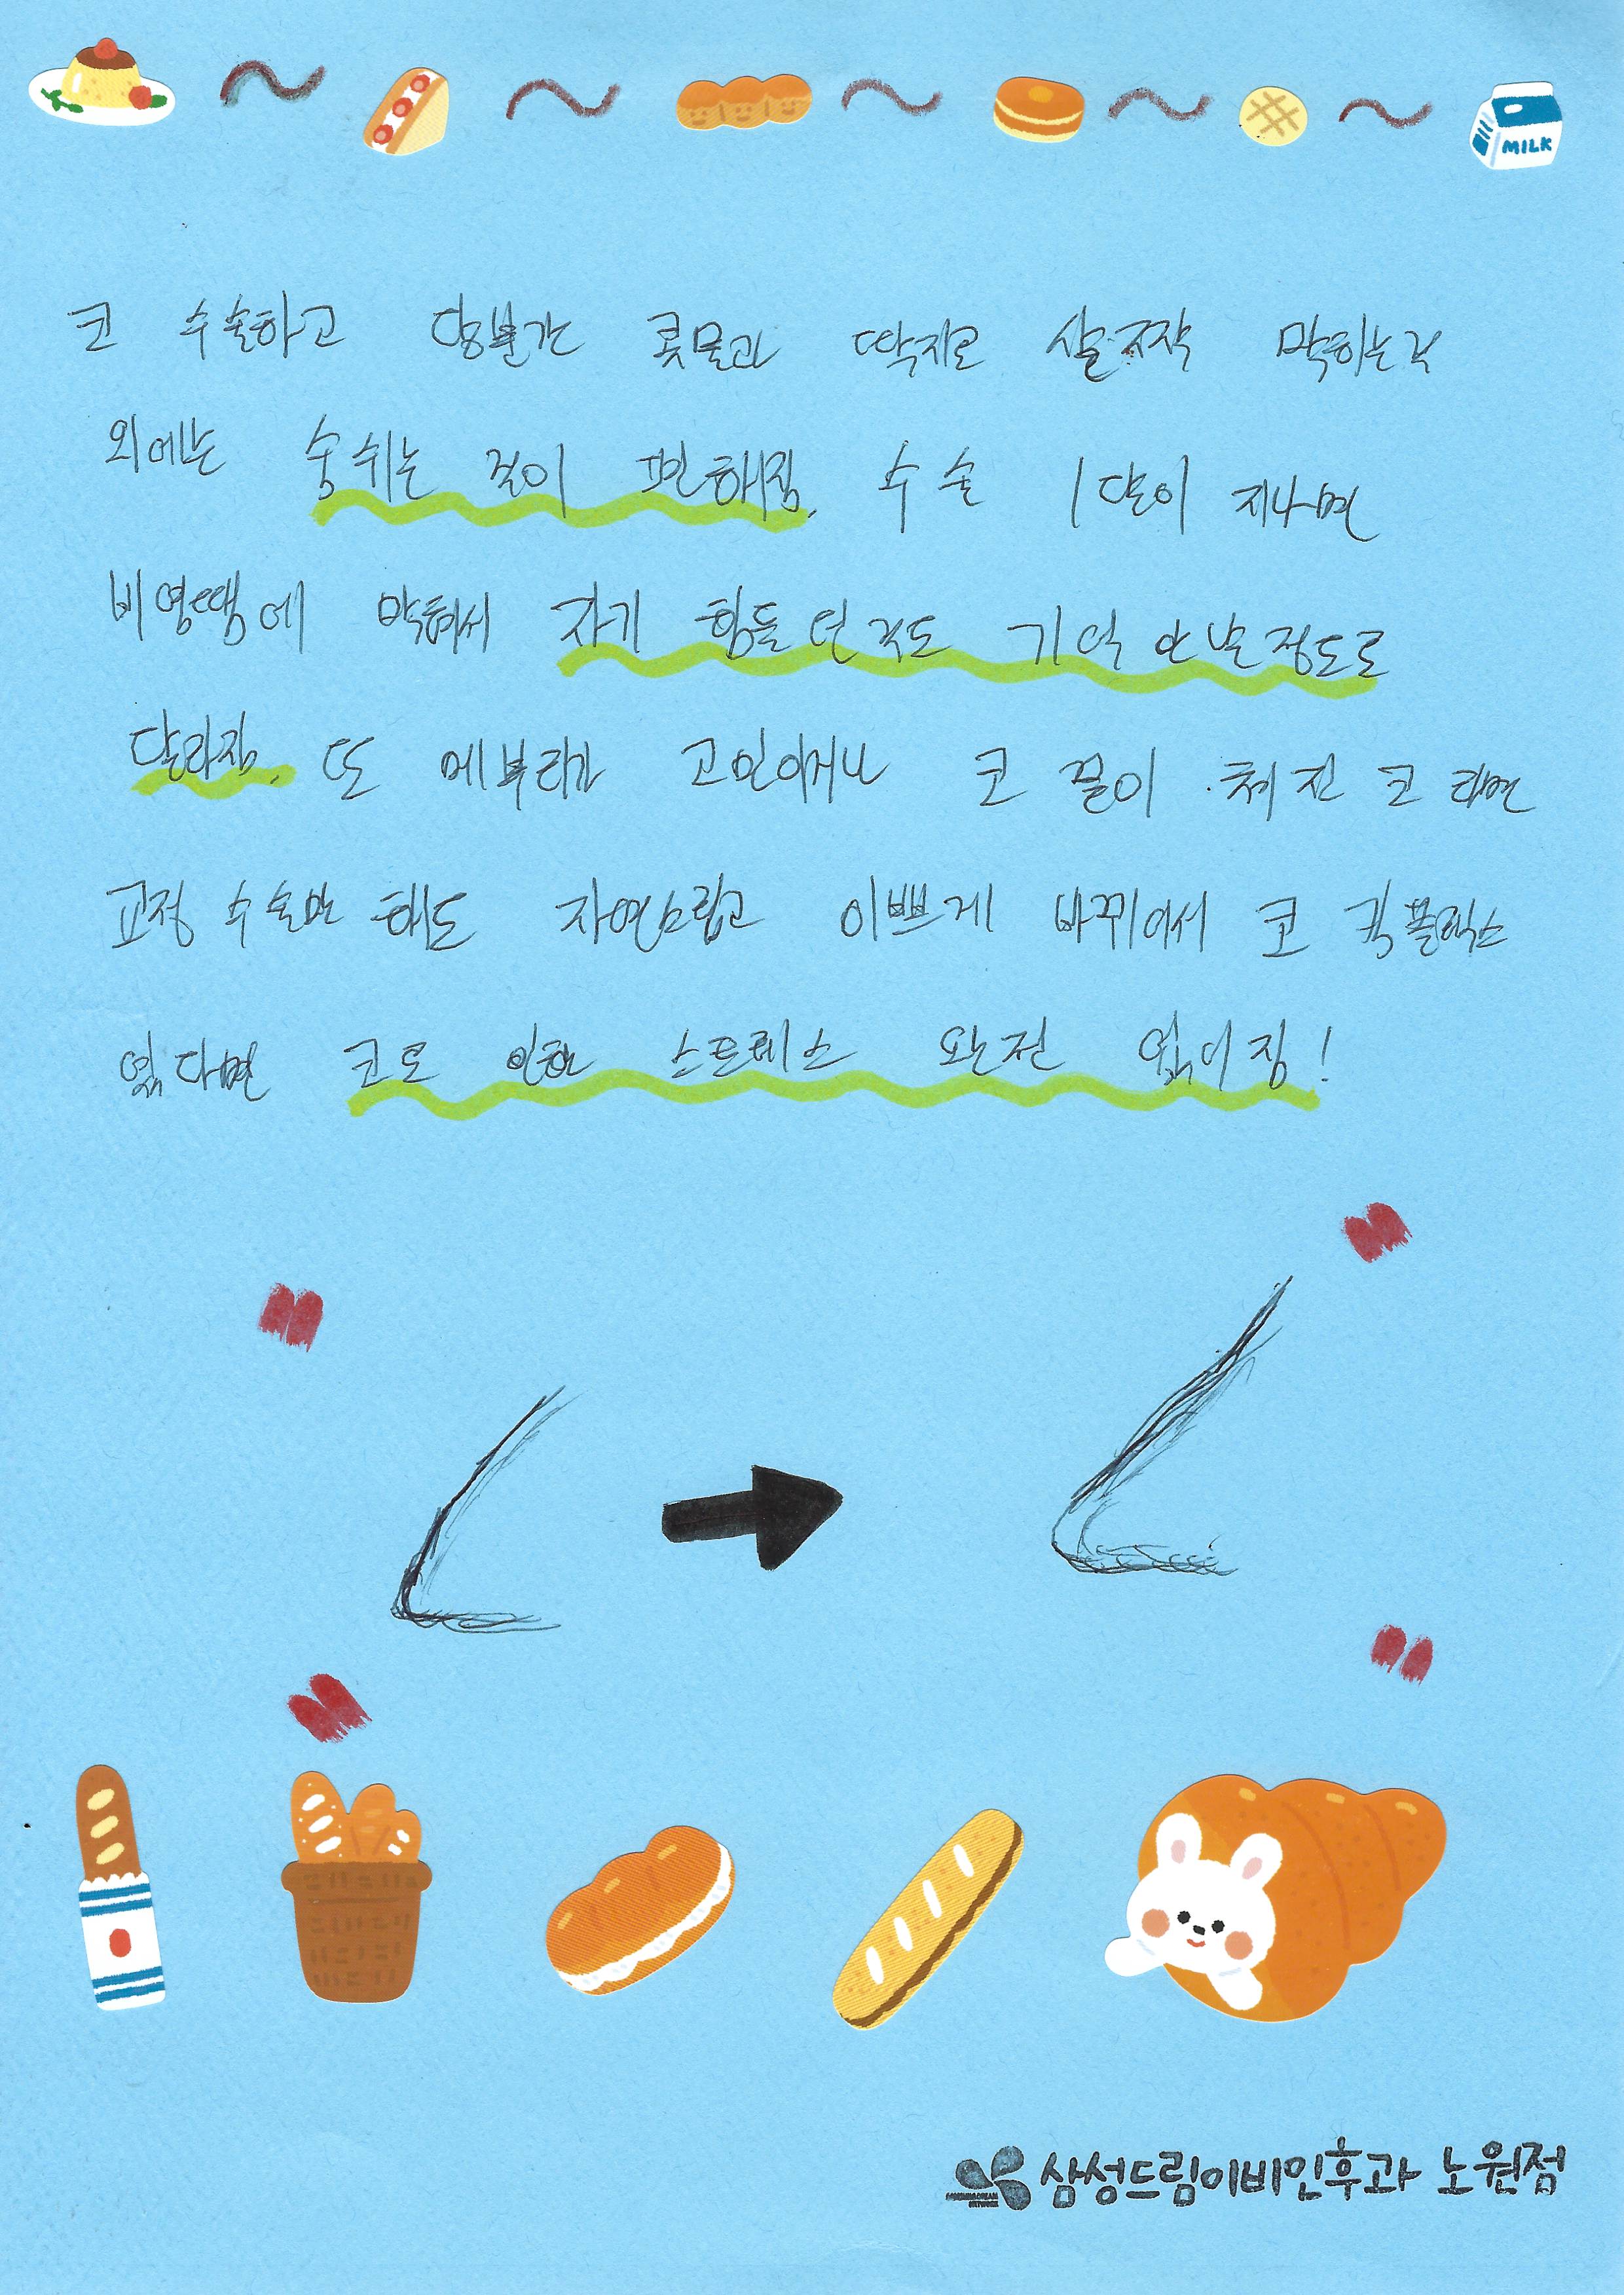 MILK
코 수술하고 당분간 콧물과 딱지로 살짝 막히는것
외에는 숨쉬는 것이 편해짐. 수술 1달이 지나면
비염땜에 막혀서 자기 힘들던 것도 기억 안날 정도로
달라짐. 또 메부리가 고민이거나 코 끝이 쳐진 코라면
교정 수술만 해도 자연스럽고 이쁘게 바뀌어서 코 컴플렉스
있다면 코로 인한 스트레스 완전 없어짐!
삼성드림이비인후과 노원점